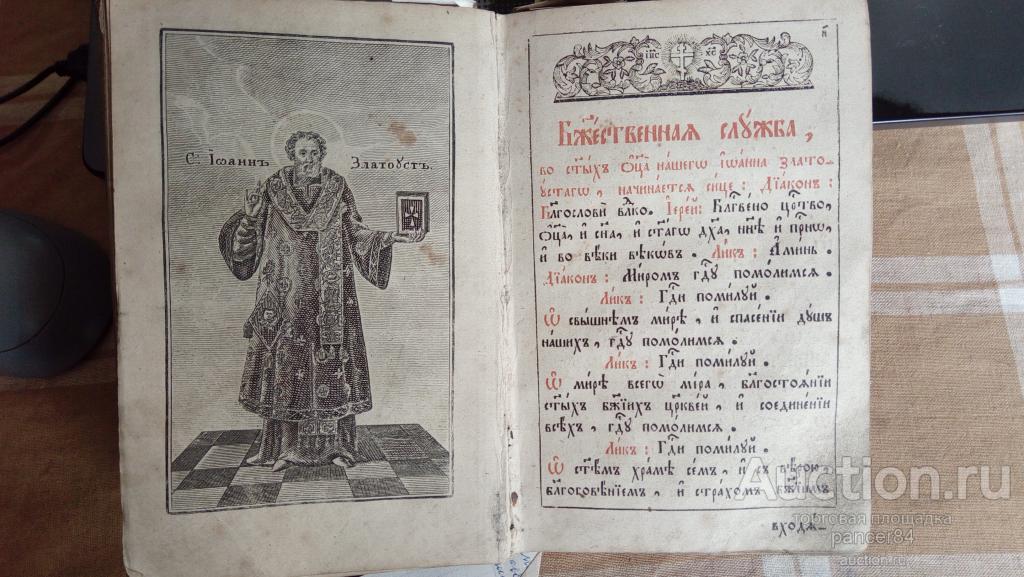 С: Іѡаннъ Златоустъ.
І҃ИС ХС҃
Бж҃ественная слꙋжба,
во ст҃ыхъ ѻц҃а нашегѡ і҆ѡанна злато-
ꙋстагѡ, начинается сице: Дїаконъ:
Бл҃гословѝ влⷣко. Іерей: Бл҃гве́но цр҃тво,
ѻц҃а, и҆ сн҃а, и҆ ст҃агѡ дх҃а, нн҃ѣ и҆ при́снѡ,
и҆ во вѣ́ки вѣкѡ́въ. Ли́къ: А҆ми́нь.
Дїа́конъ: Ми́ромъ гдⷭ҇ꙋ помо́лимсѧ.
Ли́къ: Гдⷭ҇и поми́лꙋй.
Ѡ҆ свы́шнѣмъ ми́рѣ, и҆ спасе́нїи дꙋ́шъ
на́шихъ, гдⷭ҇ꙋ помо́лимсѧ.
Ли́къ: Гдⷭ҇и поми́лꙋй.
Ѡ҆ ми́рѣ всегѡ̀ мі́ра, бл҃госто́ѧнїи
ст҃ы́хъ бж҃їихъ цр҃кве́й, и҆ соедине́нїи
всѣ́хъ, гдⷭ҇ꙋ помо́лимсѧ.
Ли́къ: Гдⷭ҇и поми́лꙋй.
Ѡ҆ ст҃ѣ́мъ хра́мѣ се́мъ, и҆ съ вѣ́рою,
бл҃гоговѣ́нїемъ, и҆ стра́хомъ бж҃їимъ
входѧ́-
Auction.ru
торговая площадка
pancer84
auction.ru